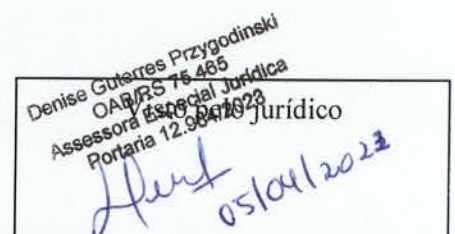 Denise Guterres Przygodinski
OAB/RS 75.465
Assessora Especial Jurídica
Portaria 12.984/2023
Visto pelo jurídico
05/04/2023